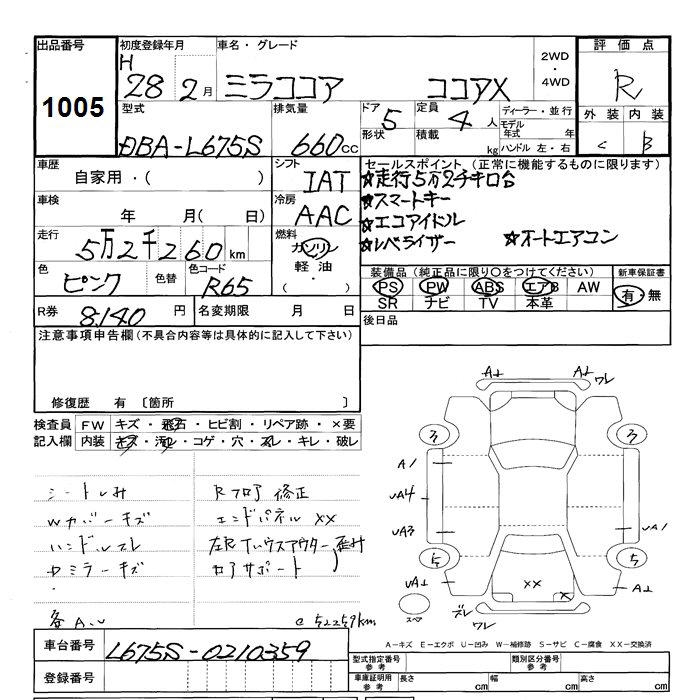 出品番号 初度登録年月 車名・グレード 2WD・4WD 評価点
1005 H 28 2月 ミラココア ココアX R
型式 排気量 ドア 5 定員 4人 ディーラー・並行 外装 内装
形状 積載 kg モデル年式 年 C B
DBA-L675S 660cc ハンドル 左・右
車歴 シフト セールスポイント (正常に機能するものに限ります)
自家用・( ) IAT ☆走行5万2千キロ台
車検 冷房 ☆スマートキー
年 月( 日) AAC ☆エコアイドル
走行 燃料 ☆レベライザー ☆オートエアコン
5万2千260km ガソリン
色 色替 色コード 軽油 装備品 (純正品に限り○をつけてください) 新車保証書
ピンク R65 ( ・ ) PS PW ABS エアB AW 有・無
SR ナビ TV 本革
R券 8140円 名変期限 月 日 後日品
注意事項申告欄 (不具合内容等は具体的に記入して下さい)
修復歴 有 〔箇所 〕
検査員 FW キズ・飛石・ヒビ割・リペア跡・×要
記入欄 内装 キズ・汚レ・コゲ・穴・スレ・キレ・破レ
シートしみ Rフロア 修正
Wカバーキズ エンドパネル XX
ハンドルスレ 左R
ドミラーキズ
各A.U
e 52259km
A1 A1 ワレ
3 3
A1
UA4
UA3 UA1
5 5
UA1 XX X A1
スペア ズレ ワレ
車台番号 L675S-0210359
A－キズ E－エクボ U－凹み W－補修跡 S－サビ C－腐食 XX－交換済
登録番号
型式指定番号 参考 類別区分番号 参考
車庫証明用 参考 長さ cm 幅 cm 高さ cm